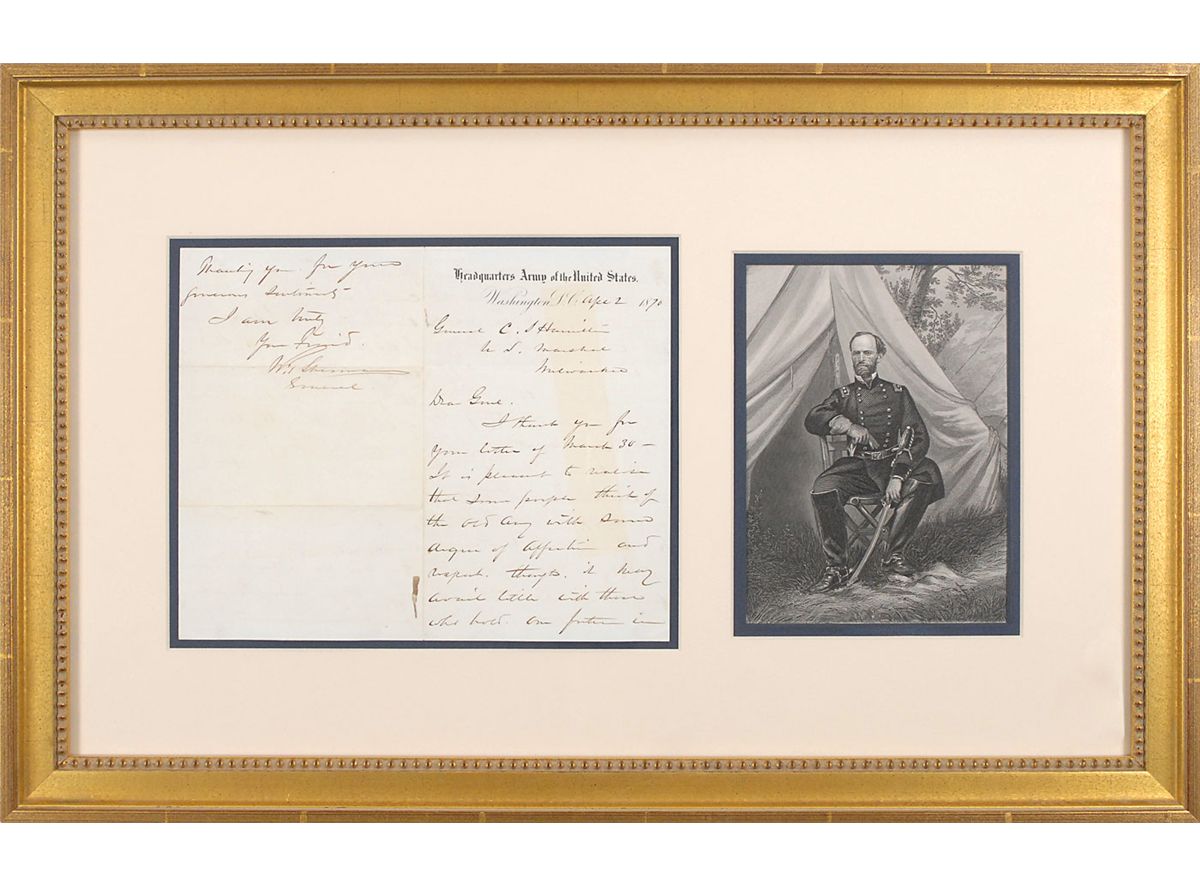 Headquarters Army of the United States.
Washington D.C. Apl 2 1870
General C. S Hamilton
U. S. Marshal
Milwaukee
Dear Genl.
I thank you for
your letter of March 30 -
It is pleasant to realise
that some people think of
the old Army with some
degree of affection and
respect. though it may
avail little with those
who hold our future in
Thanking you for your
generous sentiments
I am truly
Your friend.
W. T. Sherman
General